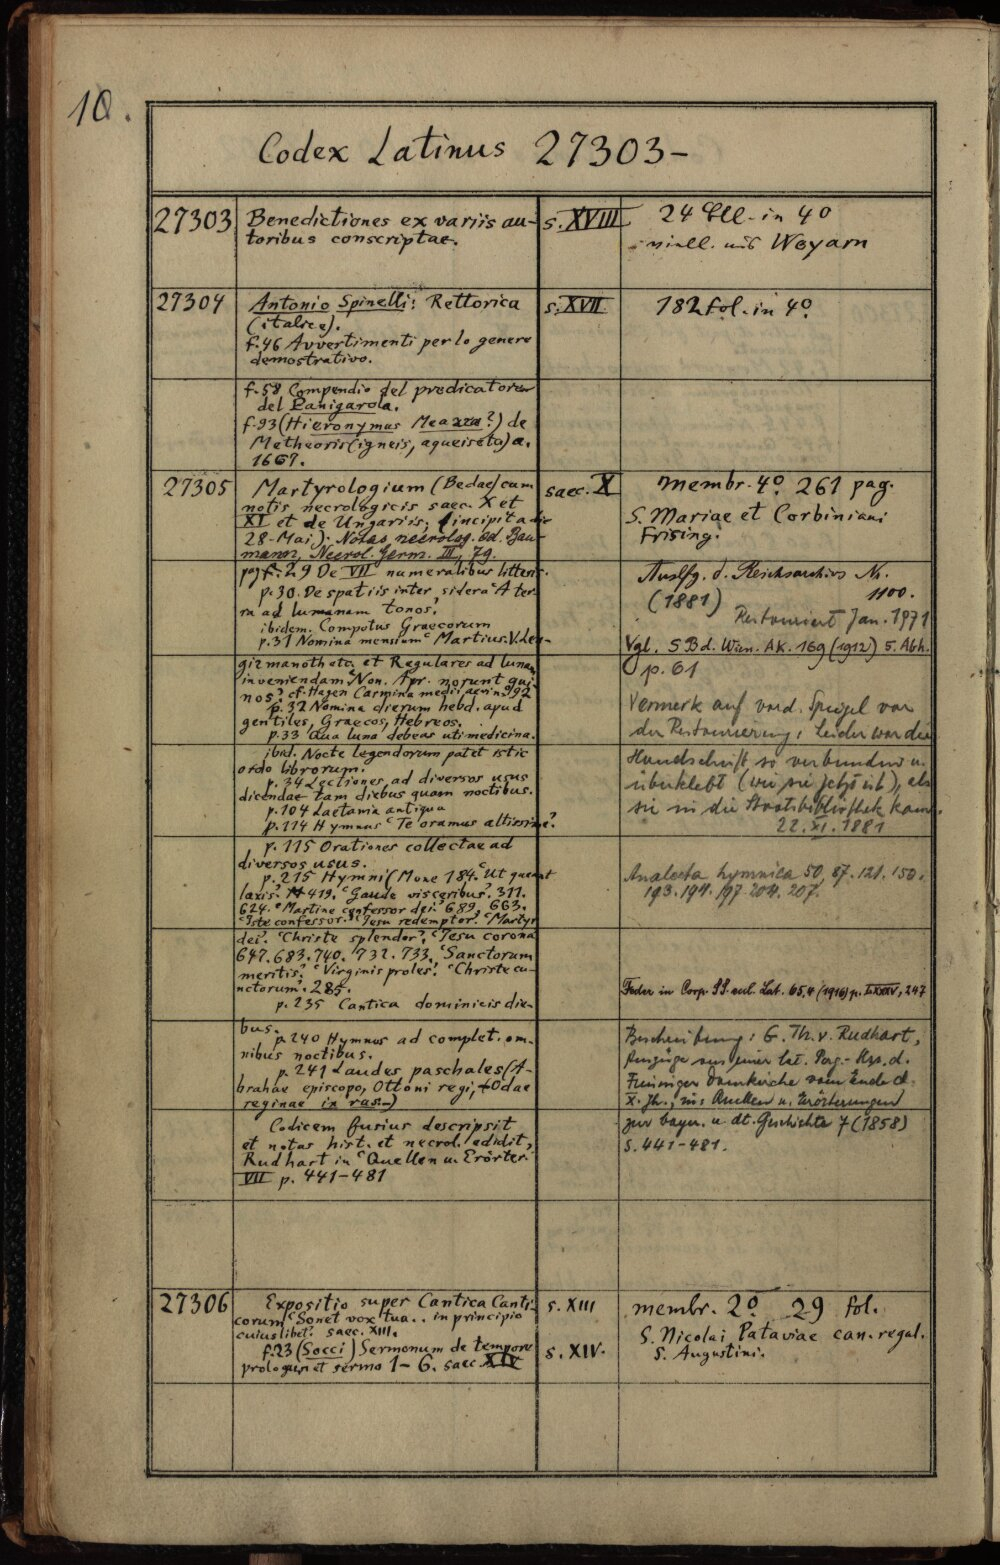 10.
Codex Latinus 27303-
27303
Benedictiones ex variis au-
toribus conscriptae.
s. XVIII
24 Bll. in 4º
Weyarn
27304
Antonio Spinelli: Rettorica
(italice).
f.46 Avvertimenti per lo genere
demostrativo.
s. XVII
182 fol. in 4º.
f.58 Compendio del predicatore
del Panigarola.
f.93 (Hieronymus ?) de
Metheoris (igneis, aqueis etc) a.
1667.
27305
Martyrologium (Bedae) cum
notis necrologicis saec. X et
XI et de Ungariis; (incipit a die
28. Mai). Notas necrolog. ed. Bau-
mann, Necrol. Germ. III, 79.
saec. X
membr. 4º. 261 pag.
S. Mariae et Corbiniani
Frising.
pg f. 29 De VII numeralibus litteris.
p. 30. De spatiis inter sidera "A ter
ra ad lunanam tonos.
ibidem. Compotus Graecorum
p. 31 Nomina mensium "Martius. V. Len-
Auslfg. d. Reichsarchivs Nr.
1100.
(1881)
Restauriert Jan. 1971
Vgl. S Bd. Wien. AK. 169 (1912) 5. Abh.
gizmanoth etc. et Regulares ad lunam
inveniendam "Non. Apr. norunt qui-
nos". cf. Hagen Carmina medii aevi n. 92
p. 32 Nomina dierum hebd. apud
gentiles, Graecos, Hebreos.
p. 33 Qua luna debeas uti medicina.
p. 61
Vermerk auf vord. Spiegel vor
der Restaurierung: Leider war die
ibid. Nocte legendorum patet istic
ordo librorum.
p. 34 Lectiones ad diversos usus
dicendae tam diebus quam noctibus.
p. 104 Laetania antiqua
p. 114 Hymnus "Te oramus altissime".
Handschrift so verbunden u.
überklebt (wie sie jetzt ist), als
sie in die Staatsbibliothek kam.
22. XI. 1881
p. 115 Orationes collectae ad
diversos usus.
p. 215 Hymni (Mone 184. "Ut queant
laxis". 419. "Gaude visceribus". 311.
624. "Martine confessor dei". 689, 663.
"Iste confessor". "Jesu redemptor". "Martyr
Analecta hymnica 50, 87. 121. 150.
193. 194. 197. 204. 207.
dei". "Christe splendor". "Jesu corona
647. 683. 740. 732. 733. "Sanctorum
meritis". "Virginis proles". "Christe cu-
nctorum". 285.
p. 235 Cantica dominicis die-
Feder in Corp. SS. eccl. Lat. 65,4 (1916) p. LXXXV, 247
bus.
p. 240 Hymnus ad complet. om-
nibus noctibus.
p. 241 Laudes paschales (A-
brahae episcopo, Ottoni regi, Odae
reginae in ras.-)
Beschreibung: G. Th. v. Rudhart,
Auszüge aus einer lat. Perg.- Hss. d.
Freisinger Domkirche vom Ende d.
X. Jh., in: Quellen u. Erörterungen
Codicem fusius descripsit
et notas hist. et necrol. edidit,
Rudhart in "Quellen u. Erörter."
VII p. 441-481
zur bayer. u. dt. Geschichte 7 (1858)
S. 441-481.
27306
Expositio super Cantica Canti-
corum "Sonet vox tua.. in principio
cuiuslibet". saec. XIII.
f. 23 (Socci) Sermonum de tempore
prologus et sermo 1-6. saec XIV
s. XIII
s. XIV.
membr. 2º. 29 fol.
S. Nicolai Pataviae can. regal.
S. Augustini.